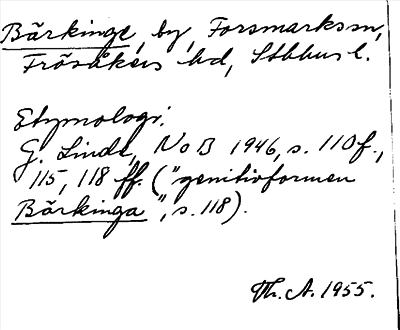 Bärkinge, by, Forsmarks sn,
Frösåkers hd, Sthlms l.
Etymologi.
G. Linde, NoB 1946, s. 110 f.,
115, 118 ff. ("genitivformen
Bärkinga", s. 118).
Th. A. 1955.